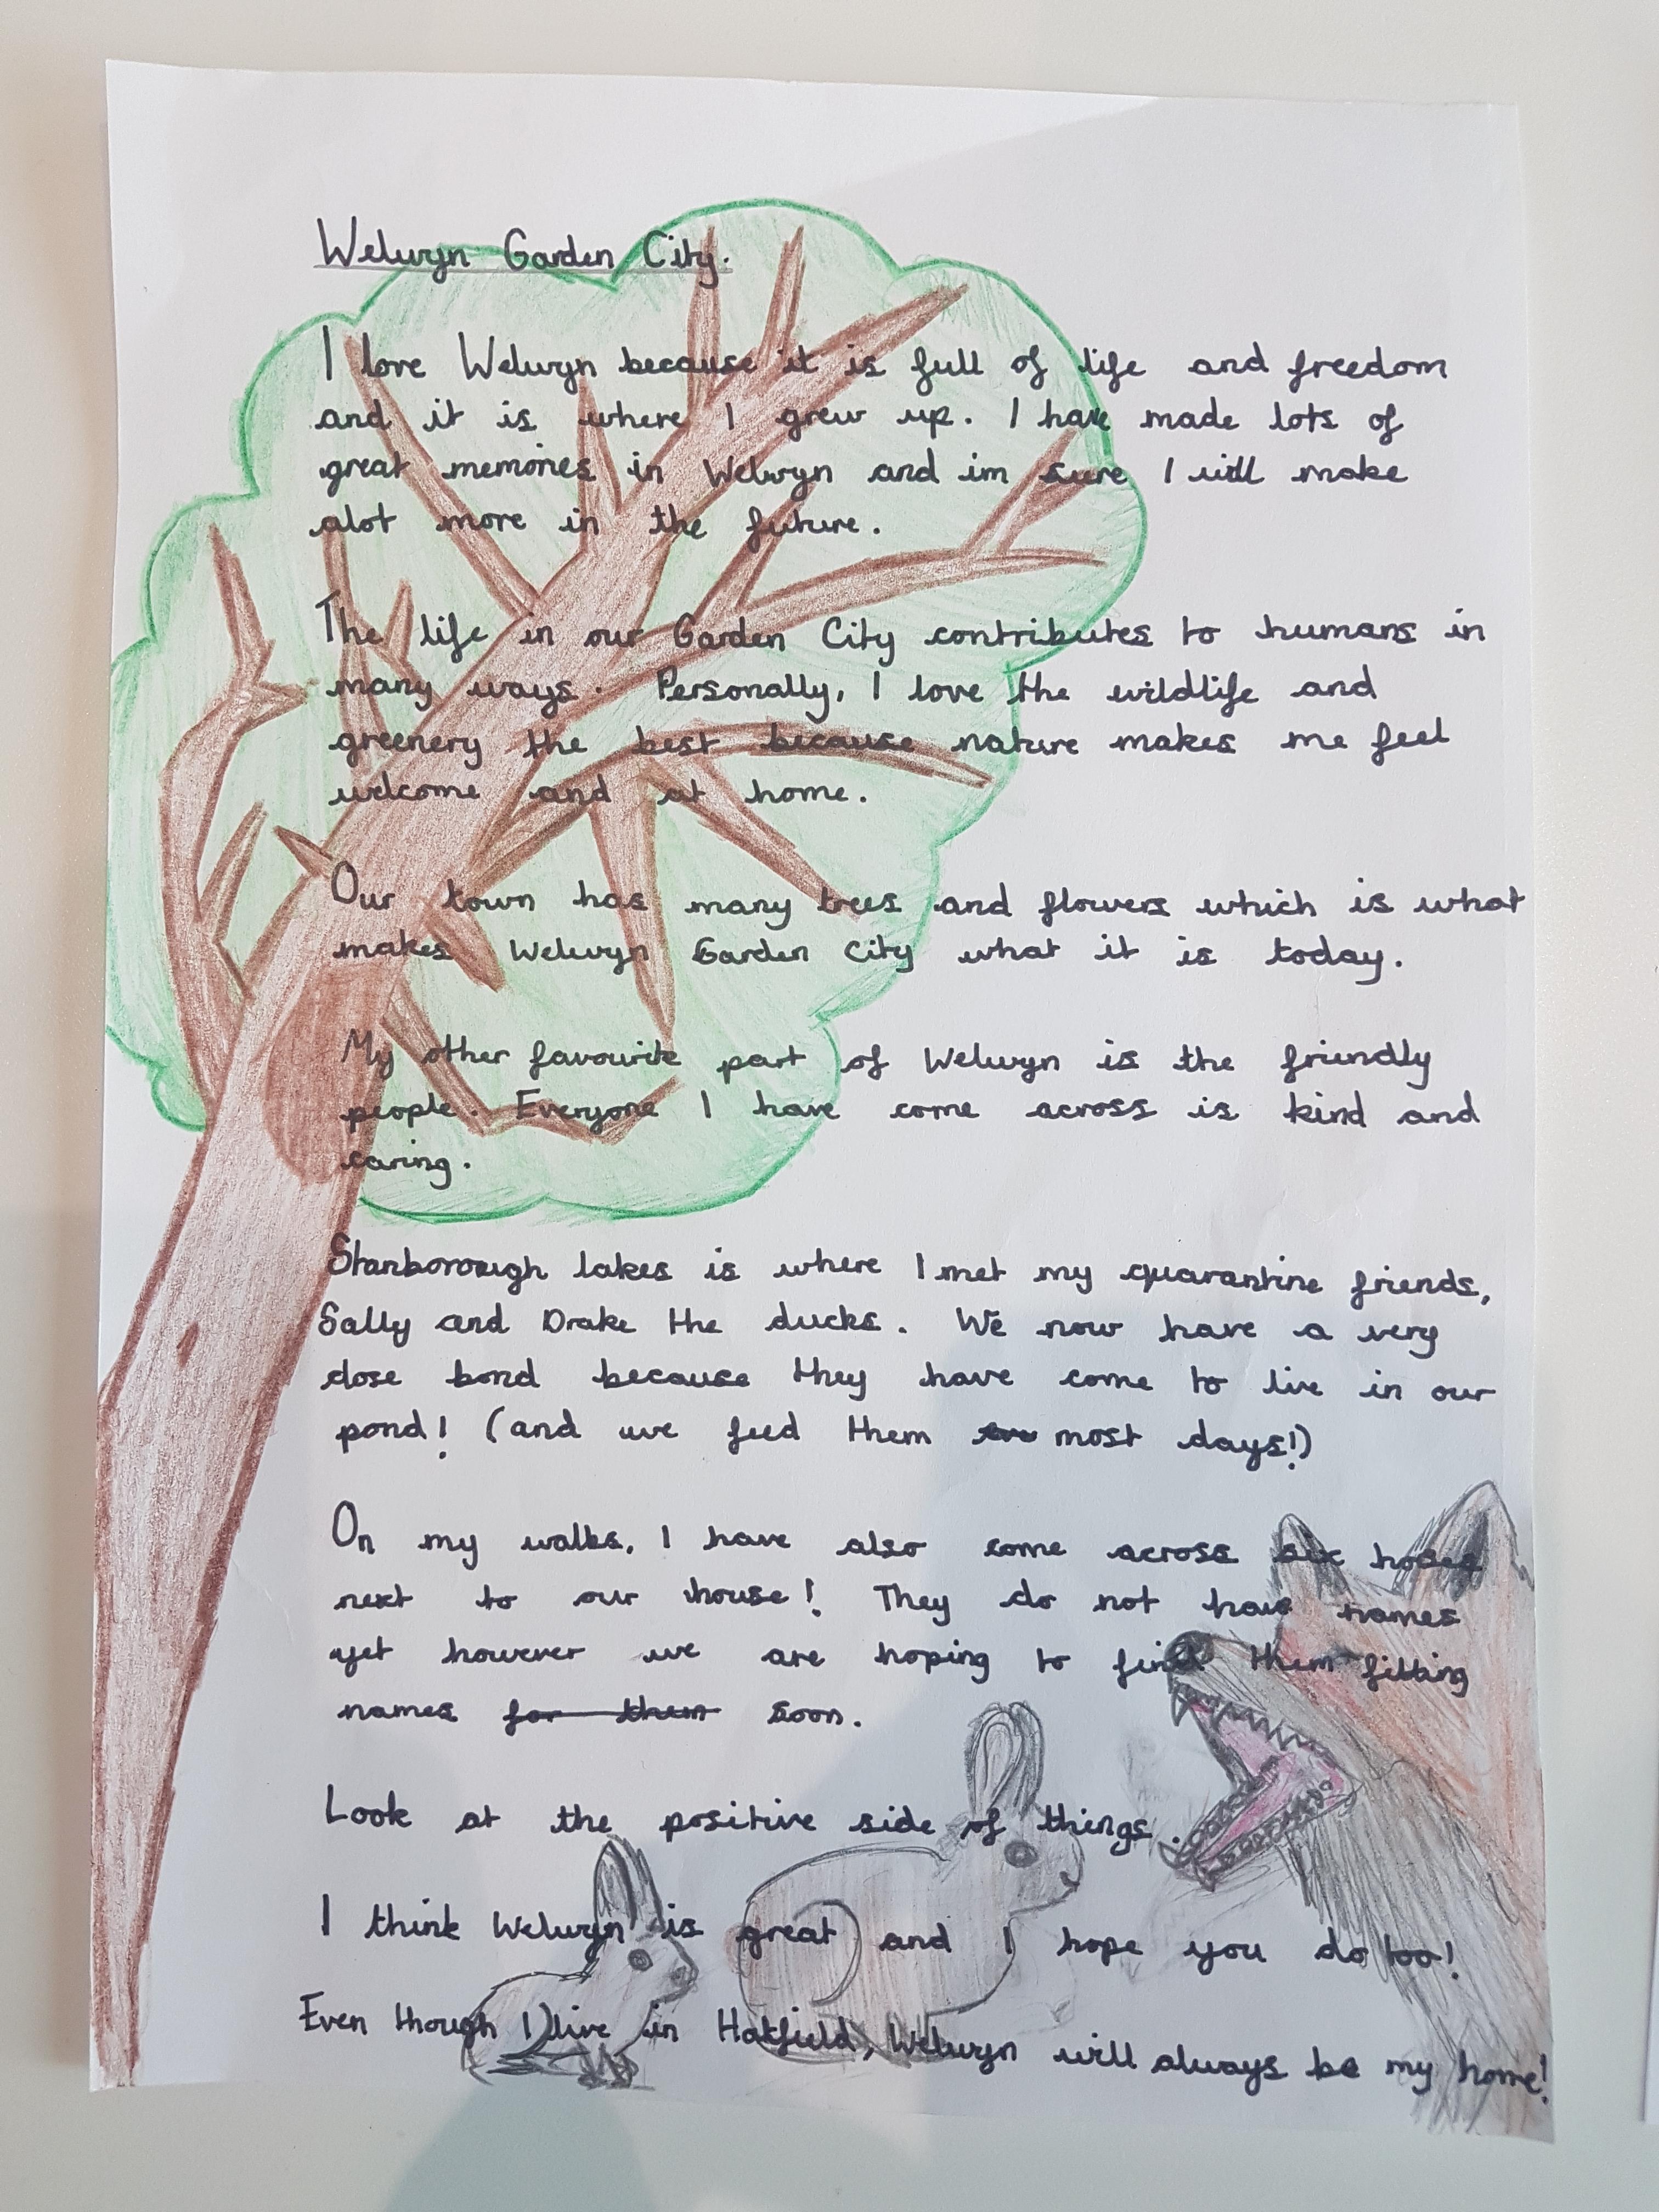 Welwyn Garden City.
I love Welwyn because it is full of life and freedom
and it is where I grew up. I have made lots of
great memories in Welwyn and im sure I will make
alot more in the future.
The life in our Garden City contributes to humans in
many ways. Personally, I love the wildlife and
greenery the best because nature makes me feel
welcome and at home.
Our town has many trees and flowers which is what
makes Welwyn Garden City what it is today.
My other favourite part of Welwyn is the friendly
people. Everyone I have come across is kind and
caring.
Stanborough lakes is where I met my quarantine friends,
Sally and Drake the ducks. We now have a very
close bond because they have come to live in our
pond! (and we feed them most days!)
On my walks, I have also come across six
next to our house! They do not have names
yet however we are hoping to find them fitting
names for them soon.
Look at the positive side of things.
I think Welwyn is great and I hope you do too!
Even though I live in Hatfield, Welwyn will always be my home!